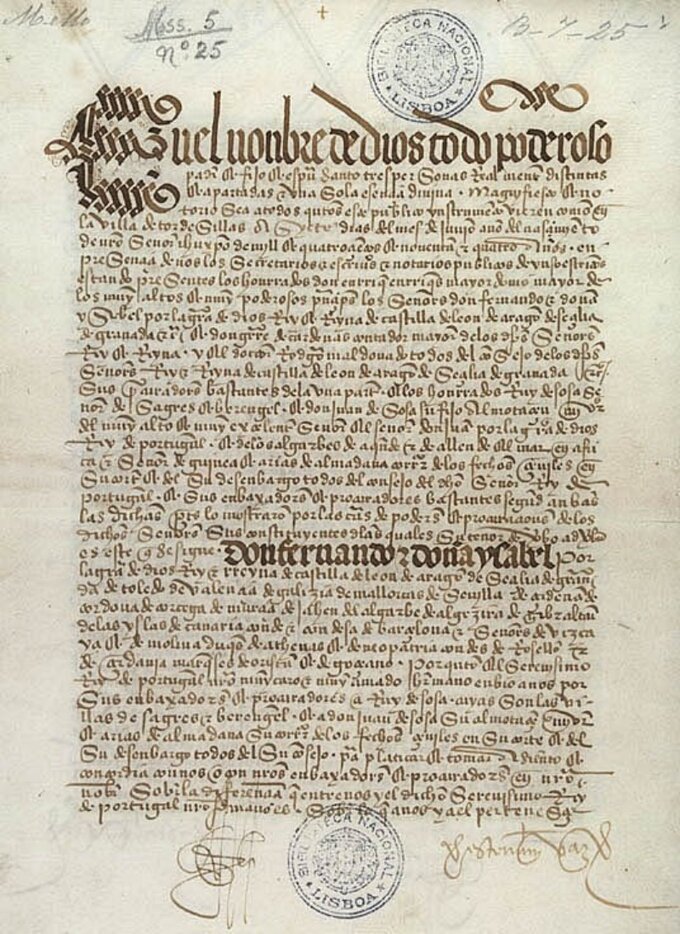 Mss. 5
Nº 25
B-7-25
BIBLIOTECA NACIONAL LISBOA
En el nonbre de dios todo poderoso
padre & fijo & espu santo tres personas Real mente distintas
& apartadas & vna Sola esencia diuina. Magnifiesto & no
torio Sea a todos quantos este publico ynstrumento vieren como en
la villa de tordesillas a Syete dias del mes de junio año del nasçimiento
de nro Señor ihu xpo de mill & quatroçientos & nouenta & quatro años. en
presençia de nos los Secretarios & escriuanos & notarios publicos de yuso escriptos
estando presentes los honrrados don enrrique enrriques mayordomo mayor de
los muy altos & muy poderosos prinçipes los Señores don fernando & doña
ysabel por la graçia de dios Rey & Reyna de castilla de leon de aragon de seçilia
de granada & & don gutierre de cardenas contador mayor de los dichos Señores
Rey & Reyna. y el doctor Rodrigo maldonado todos del consejo de los dichos
Señores Rey & Reyna de castilla de leon de aragon de Seçilia de granada
Sus procuradores bastantes de la vna parte. & los honrrados Ruy de sosa Se
ñor de Sagres & berengel. & don juan de Sosa su fijo almotaçen mayor
del muy alto & muy exçelente Señor el señor don juan por la graçia de dios
Rey de portugal. & de los algarbes de aquende & de allende el mar en afri
ca & Señor de guinea & arias de almadana corregidor de los fechos çiuiles en
Su corte & del Su desenbargo todos del consejo del dicho Señor Rey de
portugal. & Sus enbaxadores & procuradores bastantes segund anbas
las dichas partes lo mostraron por las cartas de poderes & procuraçiones de los
dichos Señores Sus constituyentes de las quales Su tenor de vbo ad vbo
es este que se sigue. Don fernando & doña ysabel por
la graçia de dios Rey & rreyna de castilla de leon de aragon de Seçilia de grana
da de toledo de valençia de galizia de mallorcas de Seuilla de çerdeña de
cordoua de corçega de murçia de jahen del algarbe de algezira de gibraltar
de las yslas de canaria conde & condesa de barçelona & Señores de vizca
ya & de molina duques de athenas & de neopatria condes de Rosellon &
de çerdania marqueses de oristan & de goçiano. Porquanto el Serenisimo
Rey de portugal nro muy caro & muy amado hermano enbio a nos por
Sus enbaxadores & procuradores a Ruy de sosa cuyas Son las vi
llas de sagres & berengel. & a don juan de sosa Su almotaçen mayor
& arias de almadana Su corregidor de los fechos çiuiles en Su corte & del
Su desenbargo todos del Su consejo. para platicar & tomar asiento &
concordia con nos o con nros enbaxadores & procuradores en nro
nonbre Sobre la diferençia que entre nos y el dicho Serenisimo Rey
de portugal nro hermano es. Sobre lo que a nos y a el perteneçe
BIBLIOTECA NACIONAL LISBOA